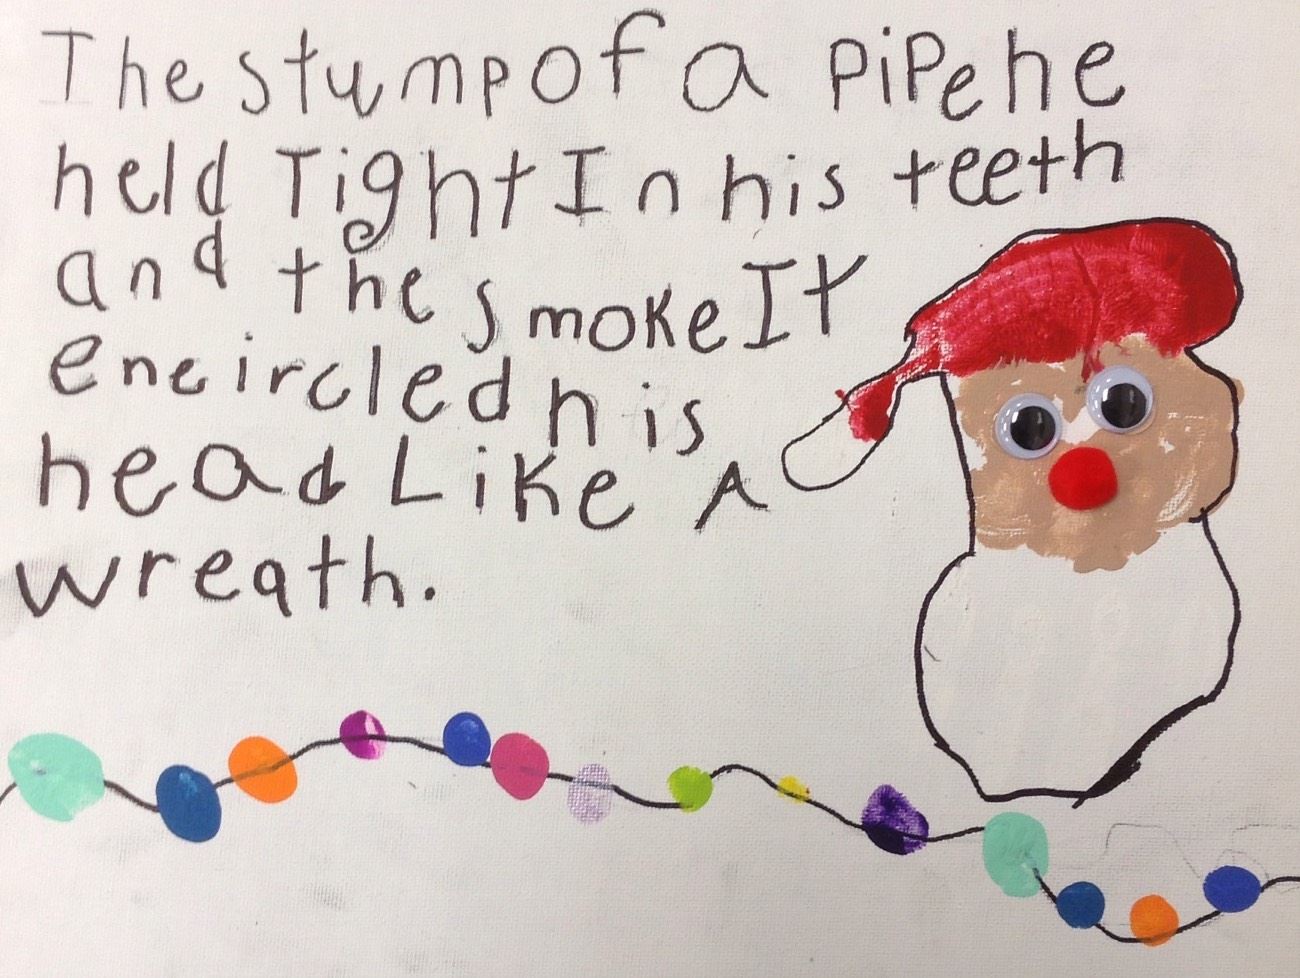 The stump of a pipe he
held Tight In his teeth
and the smoke It
encircled his
head Like A
wreath.